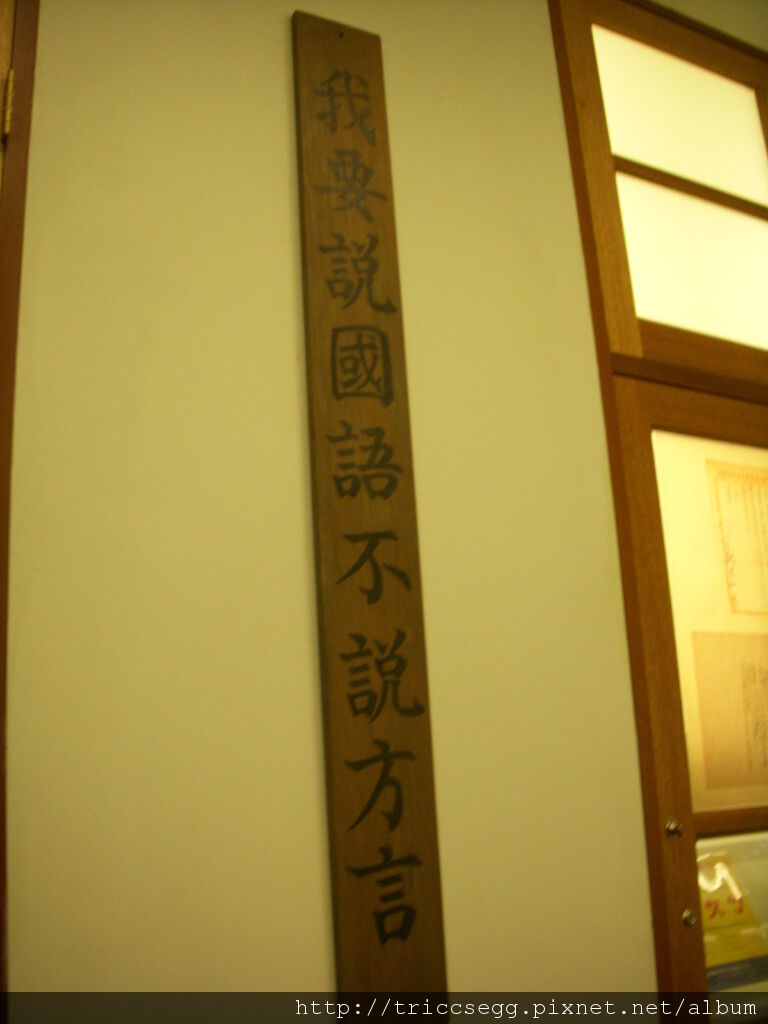 我要説國語不説方言
http://triccsegg.pixnet.net/album